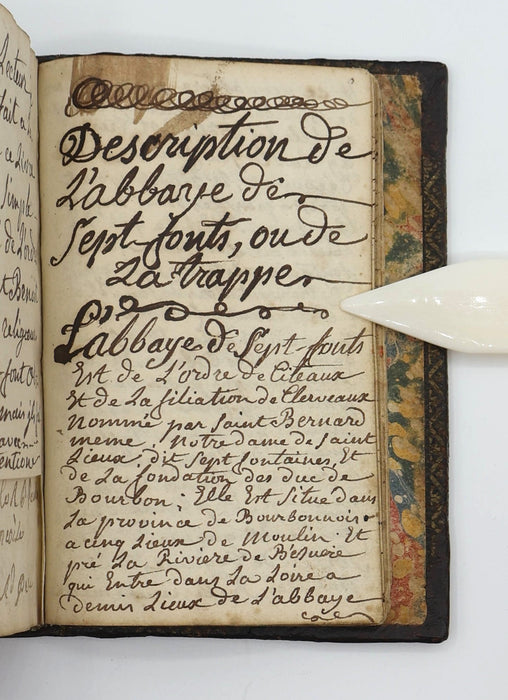 Lecteur
fait a
ce Livre
Simple
de L'ordre
t Benoit
religieux
font
mais
avan
entione
Description de
L'abbaye de
Sept-fonts, ou de
La trappe
L'abbaye de Sept fonts
Est de L'ordre de Citeaux
Et de La filiation de Clerveaux
Nommé par Saint Bernard
meme, Notre dame de Saint
Lieux, dit Sept fontaines, Et
de La fondation des duc de
Bourbon; Elle Est Situé dans
La province de Bourbonnois
a cinq Lieux de Moulin; Et
pré La Riviere de Besuere
qui Entre dans La Loire a
demis Lieux de L'abbaye